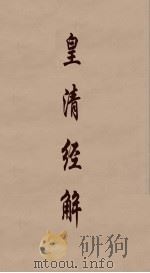 皇清经解
研狗
mtoou.info
mtoou.info